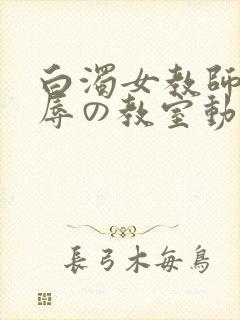 白濁女教師
辱の教室動
長弓木每鳥